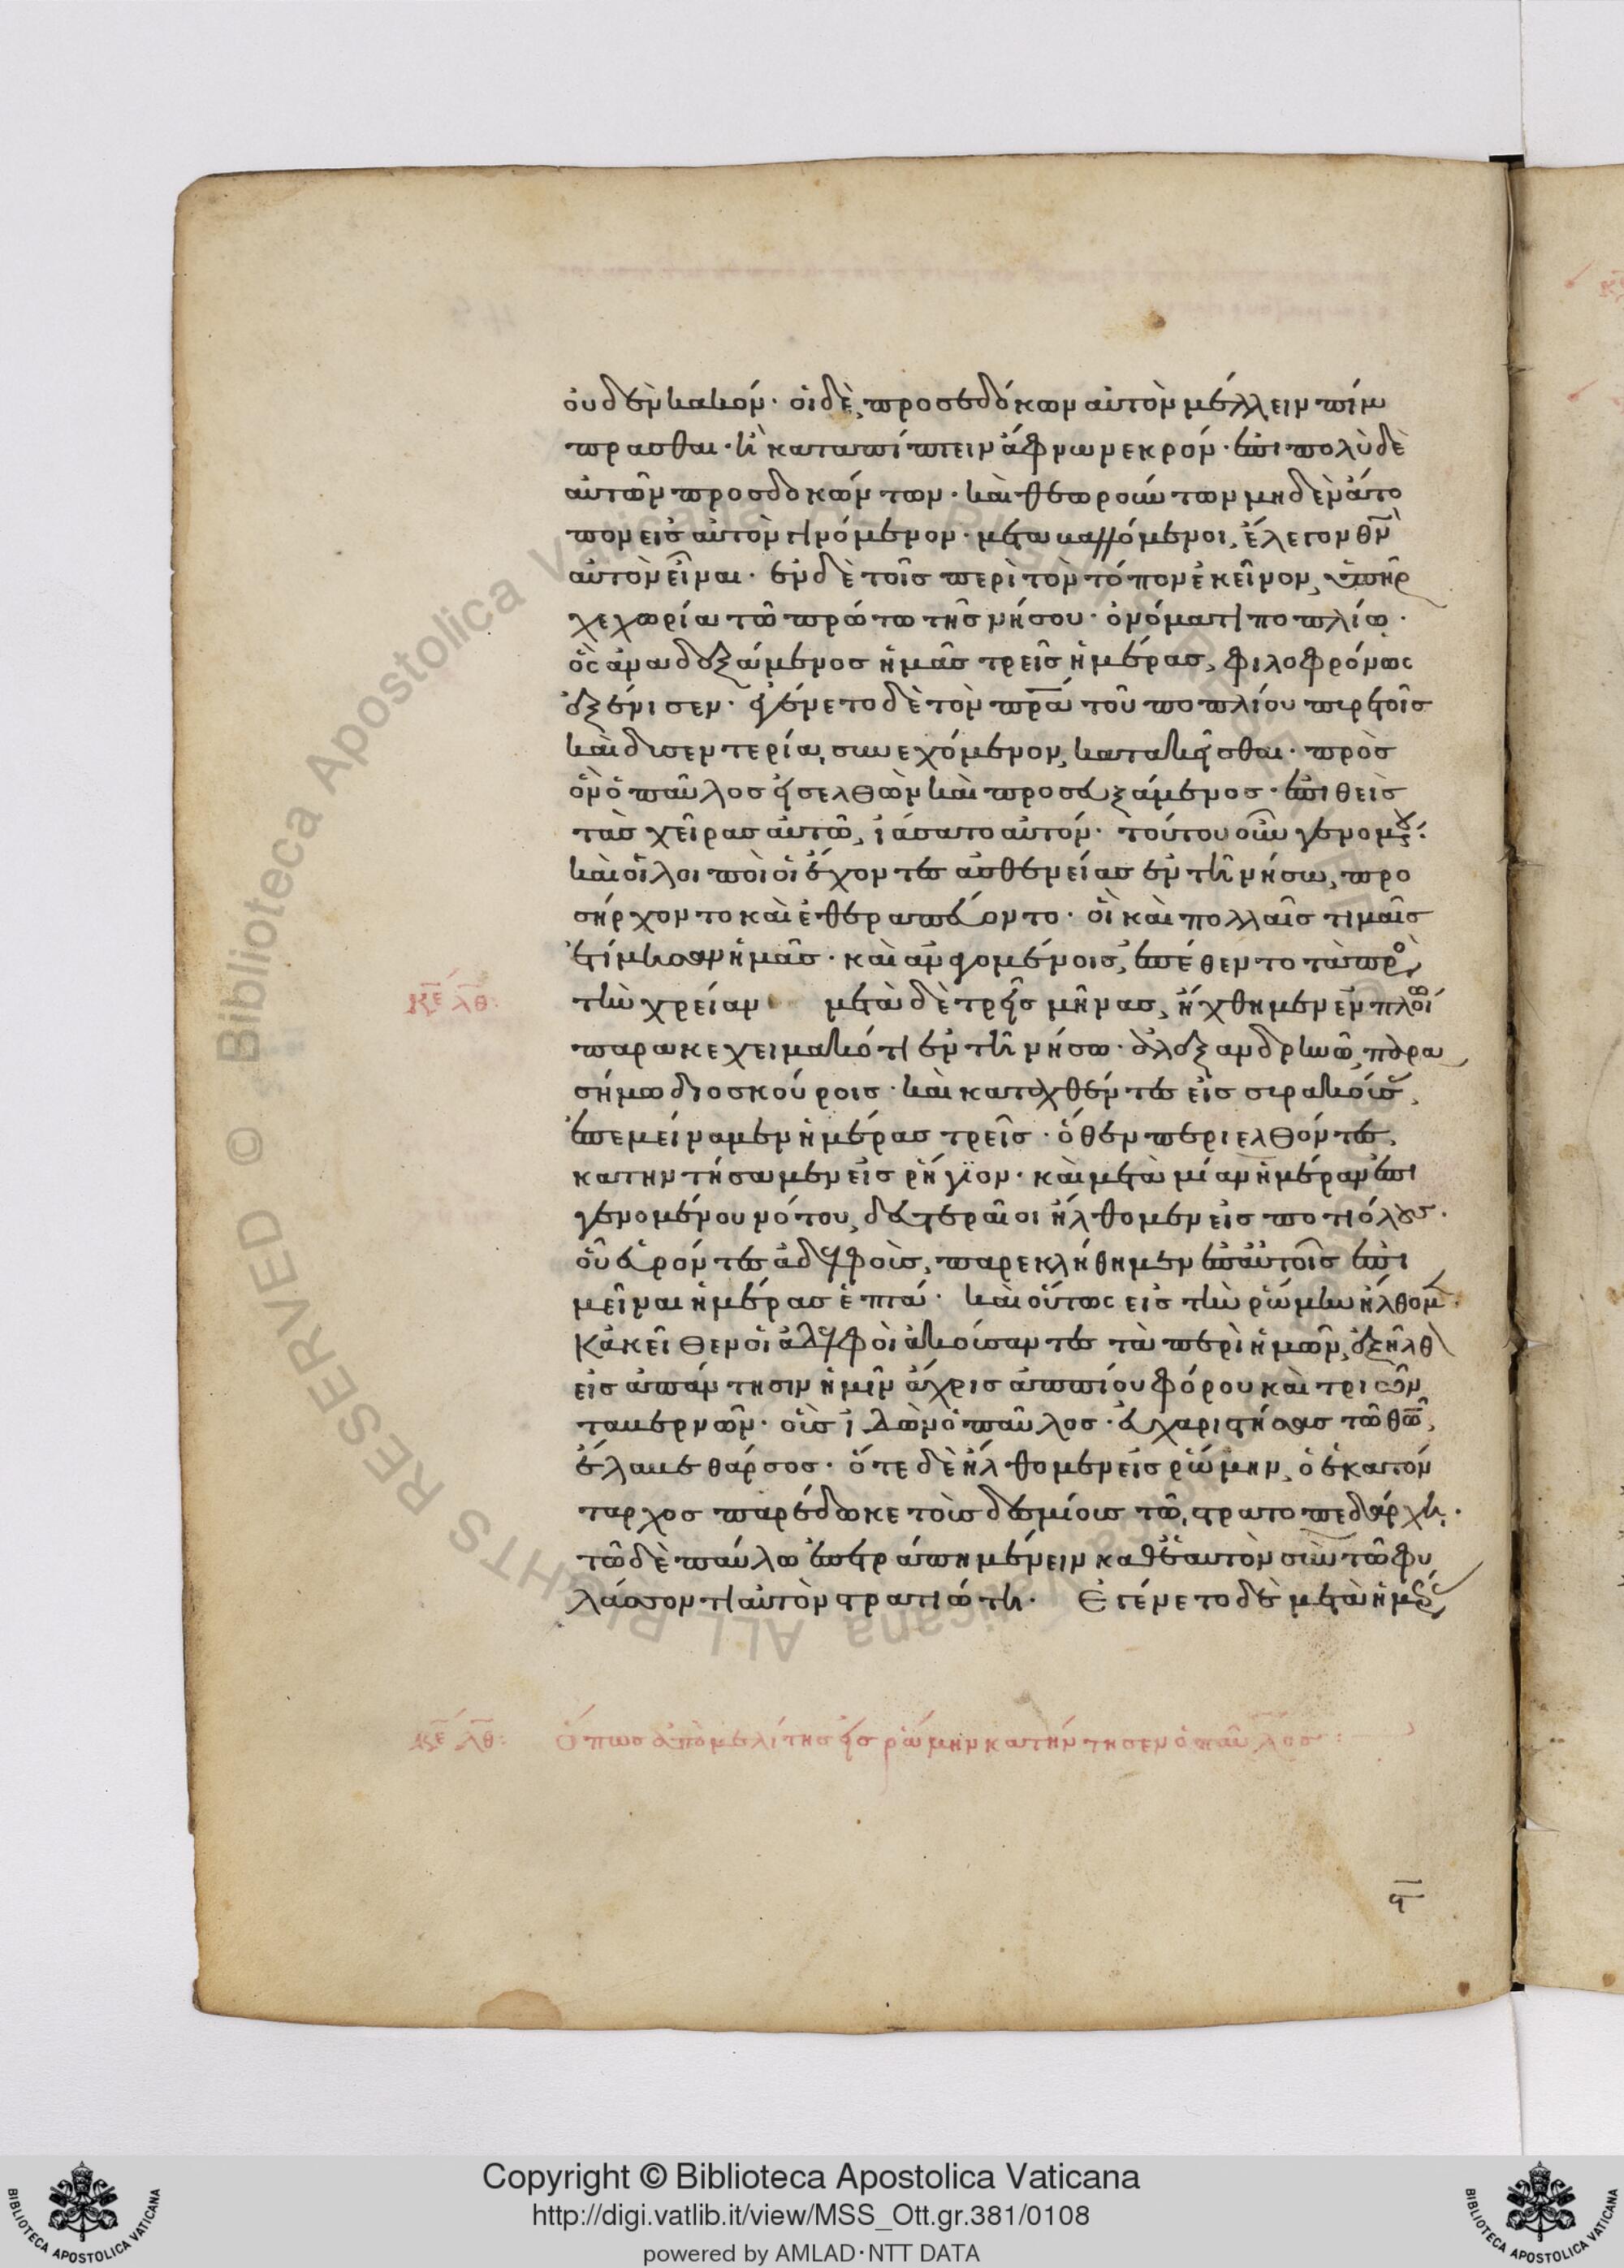 οὐδὲν κακόν· οἱ δὲ, προσεδόκων αὐτὸν μέλλειν πίμ
πρασθαι· ἢ καταπίπτειν ἄφνω νεκρόν· ἐπι πολὺ δὲ
αὐτῶν προσδοκώντων· καὶ θεωρούντων μηδὲν ἄτο
πον εἰς αὐτὸν γινόμενον· μεταβαλλόμενοι, ἔλεγον θν
αὐτὸν εἶναι· ἐν δὲ τοῖς περὶ τὸν τόπον ἐκεῖνον, ὑπῆρ
χε χωρία τῶ πρώτω τῆς νήσου· ὀνόματι ποπλίω·
ὃς ἀναδεξάμενος ἡμᾶς τρεῖς ἡμέρας, φιλοφρόνως
ἐξένισεν· ἐγένετο δὲ τὸν πρα τοῦ ποπλίου πυρετοῖς
καὶ δισεντερία, συνεχόμενον, κατακεῖσθαι· πρὸς
ὃν ὁ παῦλος εἰσελθὼν καὶ προσευξάμενος· ἐπιθεὶς
τὰς χεῖρας αὐτῶ, ἰάσατο αὐτόν· τούτου οὖν γενομένου·
καὶ οἱ λοιποὶ οἱ ἔχοντες ἀσθενείας ἐν τῆ νήσω, προ
σήρχοντο καὶ ἐθεραπεύοντο· οἳ καὶ πολλαῖς τιμαῖς
ἐτίμησαν ἡμᾶς· καὶ ἀναγομένοις, ἐπέθεντο τὰ πρὸς
τὴν χρείαν μετὰ δὲ τρεῖς μῆνας, ἤχθημεν ἐν πλοίω
παρακεχειμακότι ἐν τῆ νήσω· ἀλεξανδρινῶ, παρα
σήμω διοσκούροις· καὶ καταχθέντες εἰς συρακούσας,
ἐπεμείναμεν ἡμέρας τρεῖς· ὅθεν περιελθόντες,
κατηντήσαμεν εἰς ῥήγιον· καὶ μετὰ μίαν ἡμέραν ἐπι
γενομένου νότου, δευτεραῖοι ἤλθομεν εἰς ποτιόλους·
οὗ εὑρόντες ἀδελφοὺς, παρεκλήθημεν ἐπ αὐτοῖς ἐπι
μεῖναι ἡμέρας ἑπτά· καὶ οὕτως εἰς τὴν ῥώμην ἤλθομεν·
Κἀκεῖθεν οἱ ἀδελφοὶ ἀκούσαντες τὰ περὶ ἡμῶν, ἐξῆλθον
εἰς ἀπάντησιν ἡμῖν ἄχρις ἀππίου φόρου καὶ τριῶν
ταβερνῶν· οὓς ἰδὼν ὁ παῦλος· εὐχαριστήσας τῶ θῶ,
ἔλαβε θάρσος· ὅτε δὲ ἤλθομεν εἰς ῥώμην, ὁ ἑκατόν
ταρχος παρέδωκε τοὺς δεσμίους τῶ, στρατοπεδάρχη,·
τῶ δὲ παύλω ἐπετράπη μένειν καθ ἑαυτὸν σὺν τῶ φυ
λάσσοντι αὐτὸν στρατιώτη· Ἐγένετο δὲ μετὰ ἡμέρας
κε λθ:
κε λθ: Ὅπως ἀπὸ μελίτης εἰς ῥώμην κατήντησεν ὁ παῦλος:
Copyright © Biblioteca Apostolica Vaticana
http://digi.vatlib.it/view/MSS_Ott.gr.381/0108
powered by AMLAD·NTT DATA
BIBLIOTECA APOSTOLICA VATICANA
BIBLIOTECA APOSTOLICA VATICANA
© Biblioteca Apostolica Vaticana ALL RIGHTS RESERVED